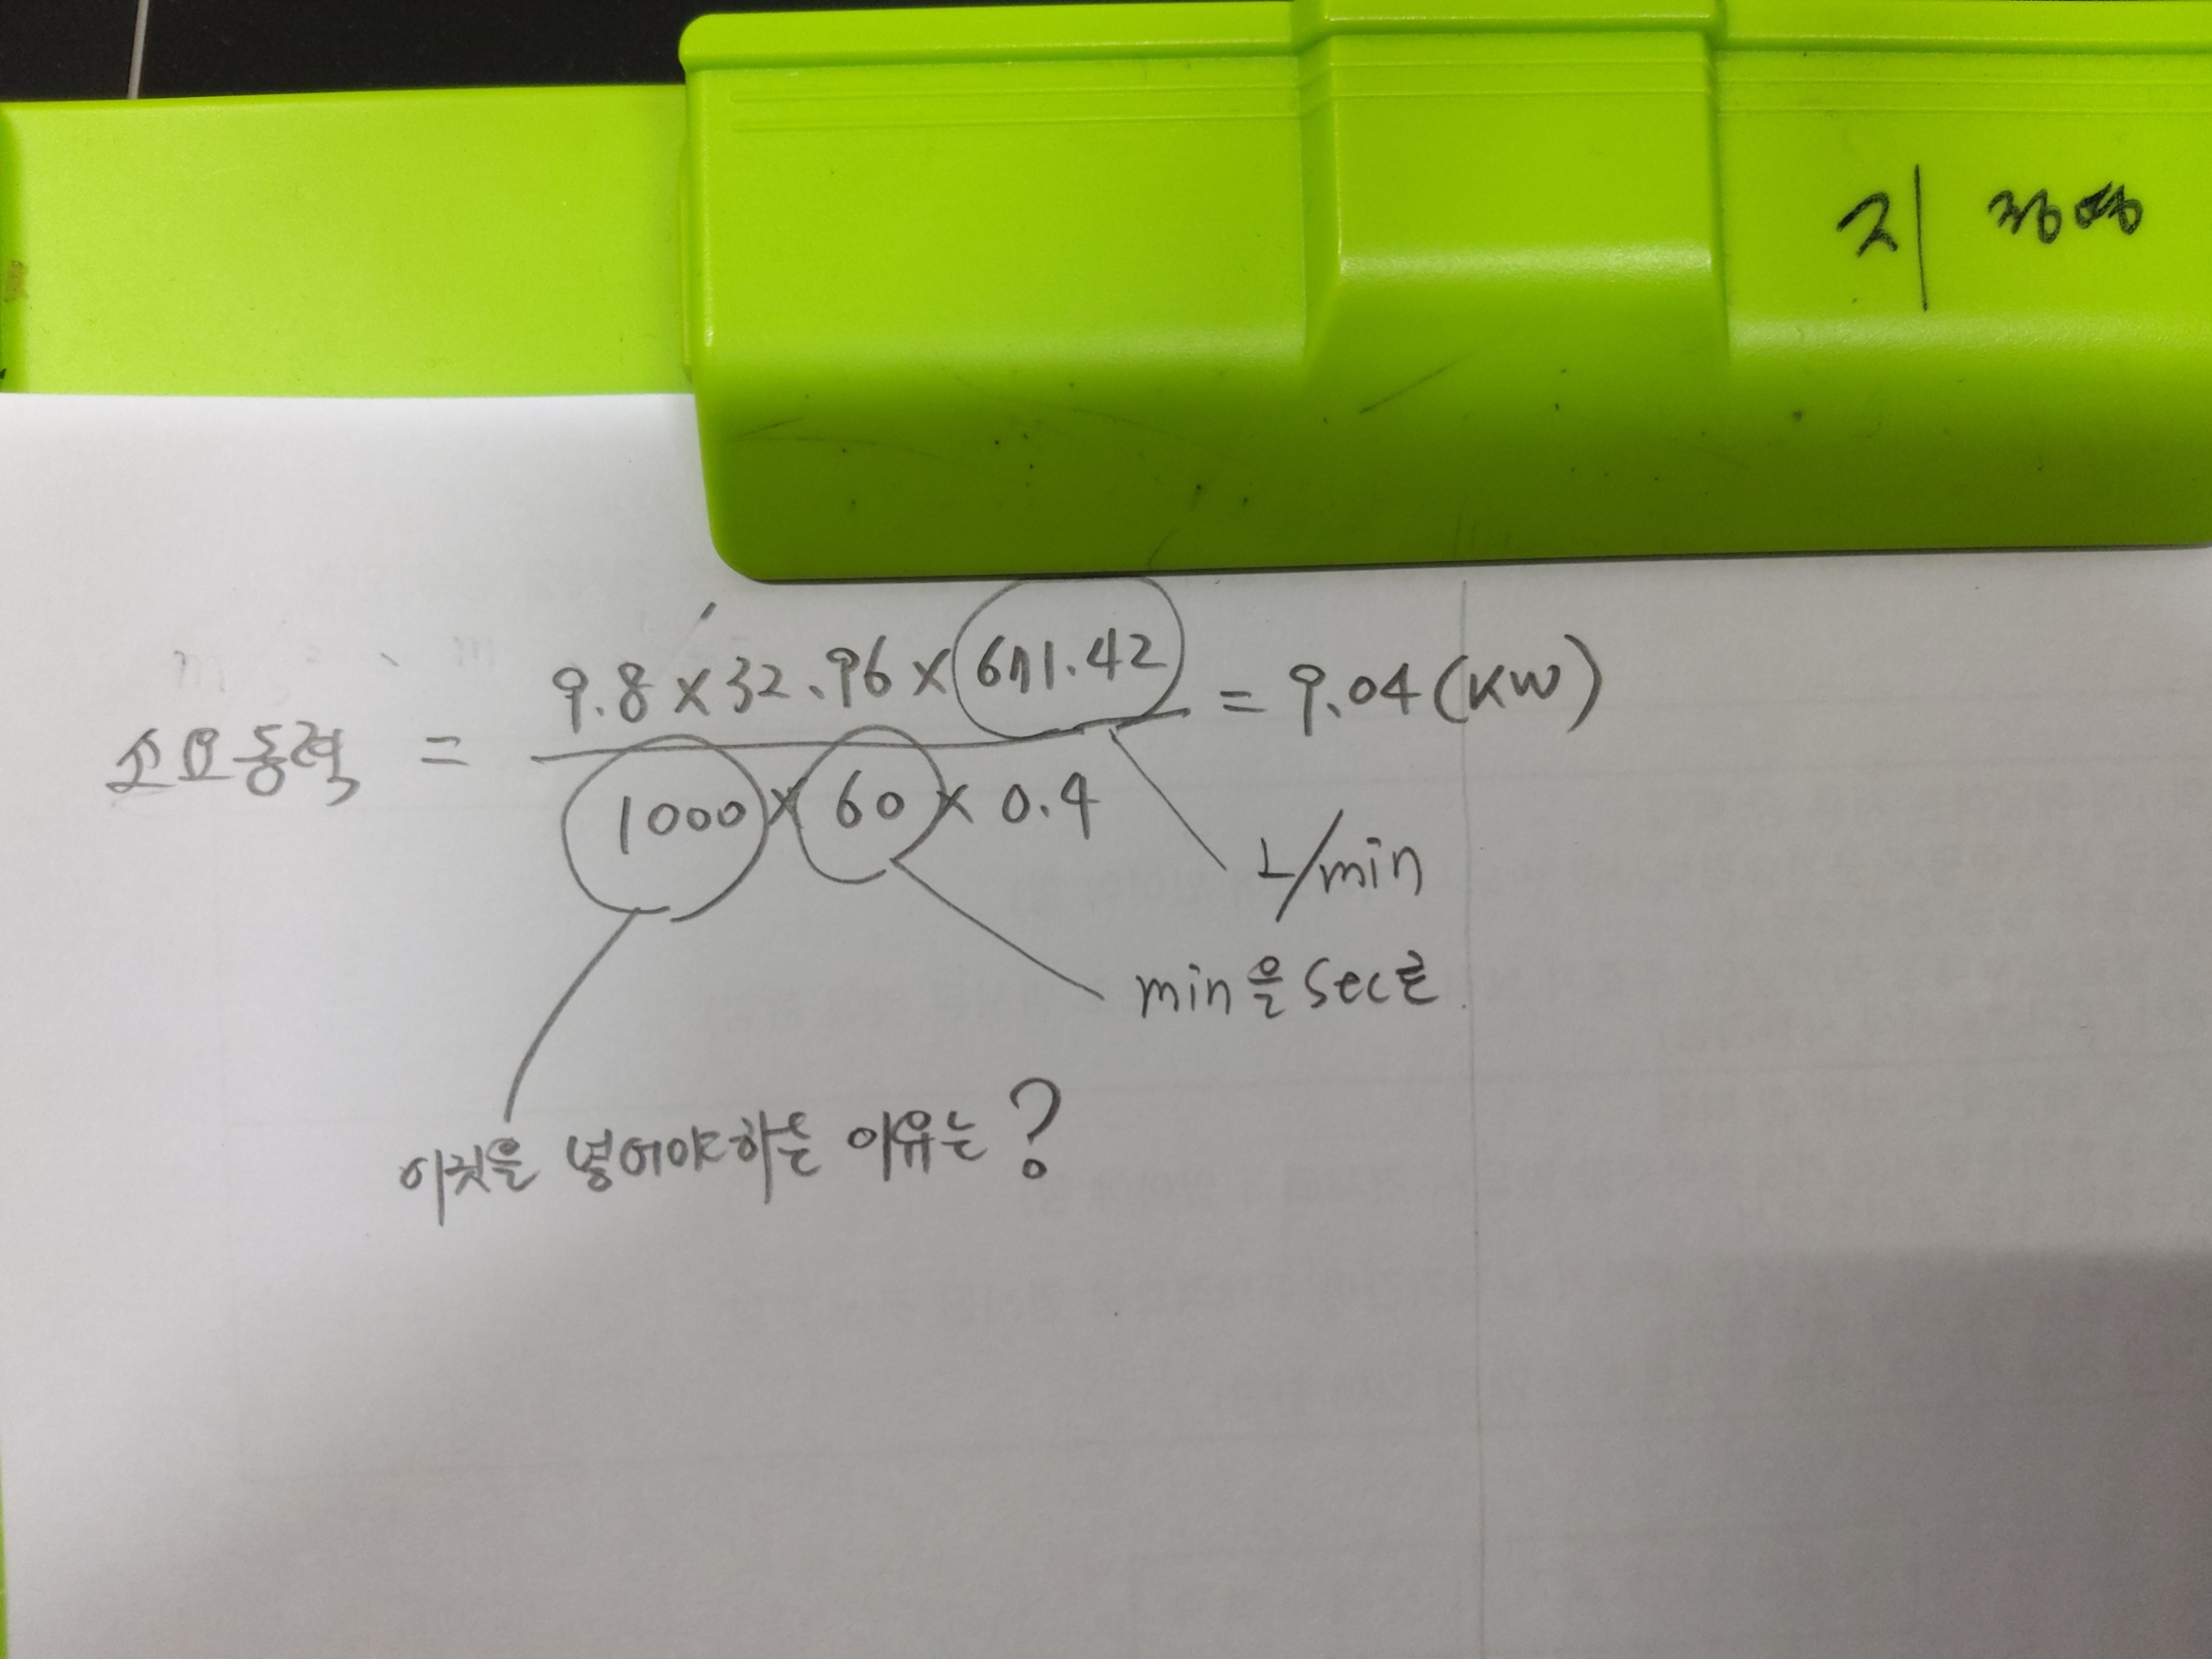 지
소요동력 = 9.8 × 32.96 × 671.42 / 1000 × 60 × 0.4 = 9.04 (KW)
L/min
min을 sec로
이것을 넣어야하는 이유는?